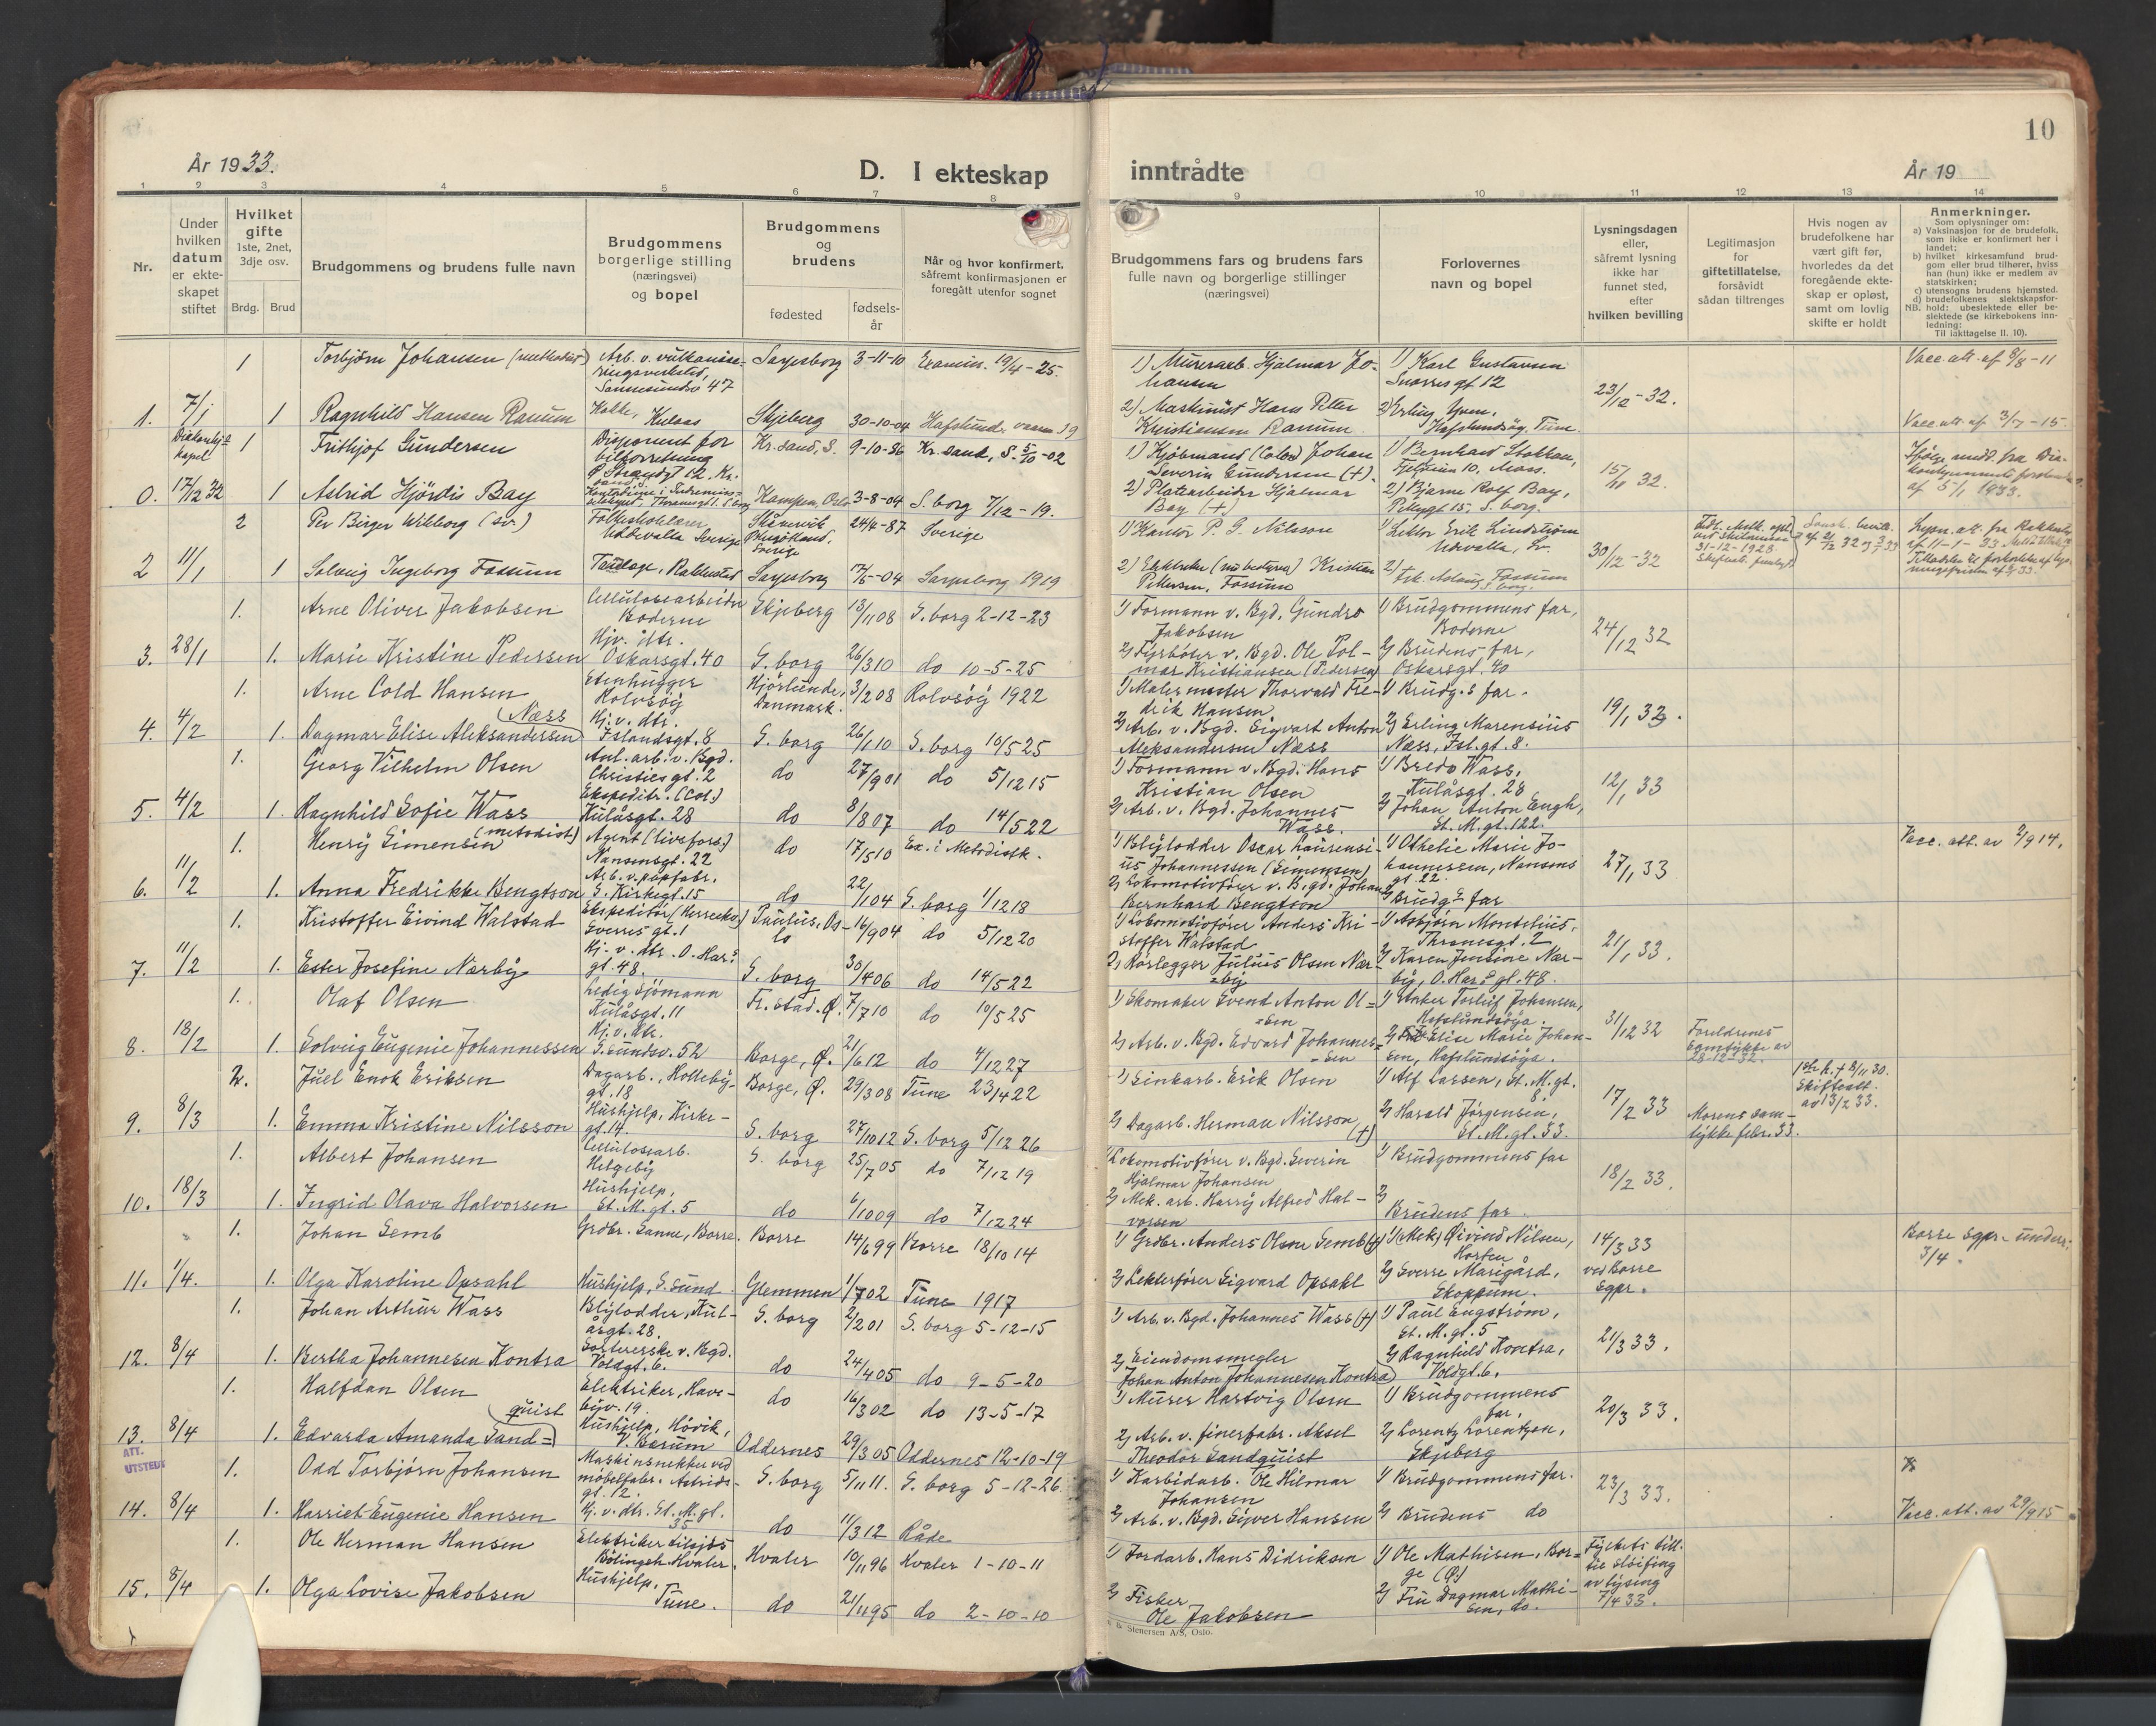 10
År 1933.
D. I ekteskap inntrådte
År 19
1 2 3 4 5 6 7 8 9 10 11 12 13 14
Nr.
Under hvilken datum er ekte- skapet stiftet
Hvilket gifte 1ste, 2net, 3dje osv.
Brdg. Brud
Brudgommens og brudens fulle navn
Brudgommens borgerlige stilling (næringsvei) og bopel
Brudgommens og brudens
fødested
fødsels- år
Når og hvor konfirmert, såfremt konfirmasjonen er foregått utenfor sognet
Brudgommens fars og brudens fars fulle navn og borgerlige stillinger (næringsvei)
Forlovernes navn og bopel
Lysningsdagen eller, såfremt lysning ikke har funnet sted, efter hvilken bevilling
Legitimasjon for giftetillatelse, forsåvidt sådan tiltrenges
Hvis nogen av brudefolkene har vært gift før, hvorledes da det foregående ekte- skap er opløst, samt om lovlig skifte er holdt
Anmerkninger.
Som oplysninger om:
a) Vaksinasjon for de brudefolk, som ikke er konfirmert her i landet;
b) hvilket kirkesamfund brud- gom eller brud tilhører, hviss han (hun) ikke er medlem av statskirken;
c) utensogns brudens hjemsted.
d) brudefolkenes slektskapsfor- hold: ubeslektede eller be- slektede (se kirkebokens inn- ledning:
NB.
Til iakttagelse II. 10).
1 Torbjørn Johansen (methodist) Arb. v. vulkanise- ringsverksted, Sannesundsv 47 Sarpsborg 3-11-10 Examin. 19/4-25. 1) Murerarb. Hjalmar Jo- hansen 1) Karl Gustavsen Snorresgt 12 23/12-32. Vacc. att. af 8/8-11
1. 7/1 1 Ragnhild Hansen Ranum Kokke, Kulaas Skjeberg 30-10-04 Hafslund 2) Maskinist Hans Peter Kristiansen Ranum 2) Erling Hafslundsøy, Tune Vacc. att. af 3/7-15
Diakonhj. kapel 1 Frithjof Gundersen Disponent for bilforretning Kr.sand, S. 9-10-86 Kr. sand, S. 5/10-02 1) Kjøbmand (Colon) Johan Severin Gundersen (+). 1) Bernhard Stokken, 10, Moss. 15/11 32. Ifølge medd. fra Dia-
0. 17/12 32 1 Astrid Hjördis Bay Kampen, Oslo 3-8-04 S. borg 7/12-19. 2) Platearbeider Hjalmar Bay (+) 2) Bjarne Rolf Bay, 15, S. borg. af 5/1 1933.
2 Per Birger Wiborg (sv.) Folkeskolelærer Uddevalla Sverige Sverige 24/4-87 Sverige 1) Kantor P. G. Nilsson 1) Lektor Erik Lindström Udevalla, Sv. 30/12-32 31-12-1928
2 11/1 1 Solveig Ingeborg Fossum Tandlæge, Rakkestad Sarpsborg 17/5-04 Sarpsborg 1919 Kristian Pettersen, Fossum 2) frk. Aslaug Fossum S. borg.
1. Arne Oliver Jakobsen Cellulosearbeider Boderne Skjeberg 13/11 08 S. borg 2-12-23 1) Formann v. Bgd. Gundro Jakobsen 1) Brudgommens far, Boderne 24/12 32
3. 28/1 1. Marie Kristine Pedersen Hjv. dtr. Oskarsgt. 40 S. borg 26/3 10 do 10-5-25 2) Fyrbøter v. Bgd. Ole Pol- mar Kristiansen (Pedersen) 2) Brudens far, Oskarsgt. 40
1. Arne Cold Hansen Stenhugger Rolvsøy Hjörlunde, Danmark. 3/2 08 Rolvsöy 1922 1) Malermester Thorvald Fre- drik Hansen 1) Brudg.s far. 19/1 33.
4. 4/2 1. Dagmar Elise Aleksandersen (Næss Hj. v. dtr. Islandsgt. 8 S. borg 26/1 10 S. borg 10/5 25 2) Arb. v. Bgd. Sigvart Anton Aleksandersen Næss 2) Erling Marensius Næss, Isl.gt. 8.
1. Georg Vilhelm Olsen Anl. arb. v. Bgd. Christies gt. 2 do 27/9 01 do 5/12 15 1) Formann v. Bgd. Hans Kristian Olsen 1) Bredo Wass, Kulåsgt. 28 12/1 33
5. 4/2 1. Ragnhild Sofie Wass Ekspeditr. (Col.) Kulåsgt. 28 do 8/8 07 do 14/5 22 2) Arb. v. Bgd. Johannes Wass. 2) Johan Anton Engh, St. M. gt. 122.
1. Henry Simensen (metodist) Agent (livsfors.) Nansensgt. 22 do 17/5 10 Ex. i Metodistk. 1) Blylodder Oscar Laurensi- us Johannessen (Simensen) 1) Othelie Marie Jo- hannessen, Nansens gt. 22 27/1 33 Vacc. att. av 2/9 14.
6. 11/2 1. Anna Fredrikke Bengtson Arb. v. papfabr. S. Kirkegt. 15 do 22/1 04 S. borg 1/12 18 2) Lokomotivfører v. Bgd. Johan Bernhard Bengtson 2) Brudgs far
1. Kristoffer Eivind Walstad Ekspeditør (Herreekv.) Sverres gt. 1 Paulus, Os- lo 16/9 04 do 5/12 20 1) Lokomotivfører Anders Kri- stoffer Walstad 1) Asbjørn Montelius, Thranesgt. 2 21/1 33.
7. 11/2 1. Ester Josefine Nærby Hj. v. dtr. O. Har.s gt. 48. S. borg 30/4 06 do 14/5 22 2) Rørlegger Julius Olsen Nær- by 2) Karen Jensine Nær- by, O. Har.s gt. 48.
1. Olaf Olsen Ledig Sjømann Kulåsgt. 11 Fr.stad. Ø. 7/7 10 do 10/5 25 1) Skomaker Svend Anton Ol- sen 1) Anker Torleif Johansen, Hafslundsøya. 31/12 32 Foreldrenes samtykke av 28-12-32.
8. 18/2 1. Solveig Eugenie Johannessen Hj. v. dtr. S.sundsv. 52 Borge, Ø. 21/6 12 do 4/12 27 2) Arb. v. Bgd. Edvard Johannes- sen 2) Elise Marie Johan- sen, Hafslundsøya.
2. Juel Enok Eriksen Dagarb., Holleby- gt. 18 Borge, Ø. 29/3 08 Tune 23/4 22 1) Linkarb. Erik Olsen 1) Alf Larsen, St. M. gt. 8. 17/2 33 Skifteatt. av 13/2 33.
9. 8/3 1. Emma Kristine Nilsson Hushjelp, Kirke- gt. 14. S. borg 27/10 12 S. borg 5/12 26 2) Dagarb. Herman Nilsson (+) 2) Harald Jørgensen, St. M. gt. 33. Morens sam- tykke febr. 33.
1. Albert Johansen Cellulosearb. Helgeby S. borg 25/7 05 do 7/12 19 1) Lokomotivfører v. Bgd. Severin Hjalmar Johansen 1) Brudgommens far 18/2 33.
10. 18/3 1. Ingrid Olava Halvorsen Hushjelp, St. M. gt. 5 do 6/10 09 do 7/12 24 2) Mek. arb. Harry Alfred Hal- vorsen 2) Brudens far.
1. Johan Semb Grdbr. Sanne, Borre. Borre 14/6 99 Borre 18/10 14 1) Grdbr. Anders Olsen Semb (+) 1) (Mek) Øivind Nilsen, Horten 14/3 33 ved Borre Sgpr. Borre sgpr. underr. 3/4.
11. 1/4. 1. Olga Karoline Opsahl Hushjelp, S. sund. Glemmen 1/7 02 Tune 1917 2) Lekterfører Sigvard Opsahl 2) Sverre Marigård, Skoppum.
1. Johan Arthur Wass Blylodder, Kul- åsgt. 28. S. borg 2/2 01 S. borg 5-12-15 1) Arb. v. Bgd. Johannes Wass (+) 1) Paul Engstrøm, St. M. gt. 5 21/3 33.
12. 8/4 1. Bertha Johannesen Kontra Sortererske v. Bgd. Voldgt. 6. do 24/4 05 do 9-5-20 2) Eiendomsmegler Johan Anton Johannesen Kontra 2) Ragnhild Kontra, Voldgt. 6.
1. Halfdan Olsen Elektriker, Have- byv. 19. do 16/3 02 do 13-5-17 1) Murer Hartvig Olsen 1) Brudgommens far, 20/3 33.
13. 8/4 1. Edvarda Amanda Sand= quist Hushjelp, Hövik, V. Bærum Oddernes 29/3 05 Oddernes 12-10-19 2) Arb. v. finerfabr. Aksel Theodor Sandquist 2) Lorentz Lorentzen, Skjeberg
ATT. UTSTEDT
1. Odd Torbjørn Johansen Maskinsnekker ved möbelfabr. Astrids- gt. 12. S. borg 5/11 11. S. borg 5-12-26 1) Karbidarb. Ole Hilmar Johansen 1) Brudgommens far. 23/3 33.
14. 8/4 1. Harriet Eugenie Hansen Hj. v. dtr. St. M. gt. 35 do 11/3 12 Råde 2) Arb. v. Bgd. Sijver Hansen 2) Brudens do Vacc. att. av 29/9 15
1. Ole Herman Hansen Elektriker Hvaler. Hvaler 10/11 96 Hvaler 1-10-11 1) Jordarb. Hans Didriksen 1) Ole Mathisen, Bor- ge (Ø.) Fylkets till. til sløifing av lysing 7/4 33.
15. 8/4 1. Olga Lovise Jakobsen Hushjelp, Tune. do 21/11 95 do 2-10-10 2) Fisker Ole Jakobsen 2) Fru Dagmar Mathi- sen, do.
Stenersen A/S, Oslo.